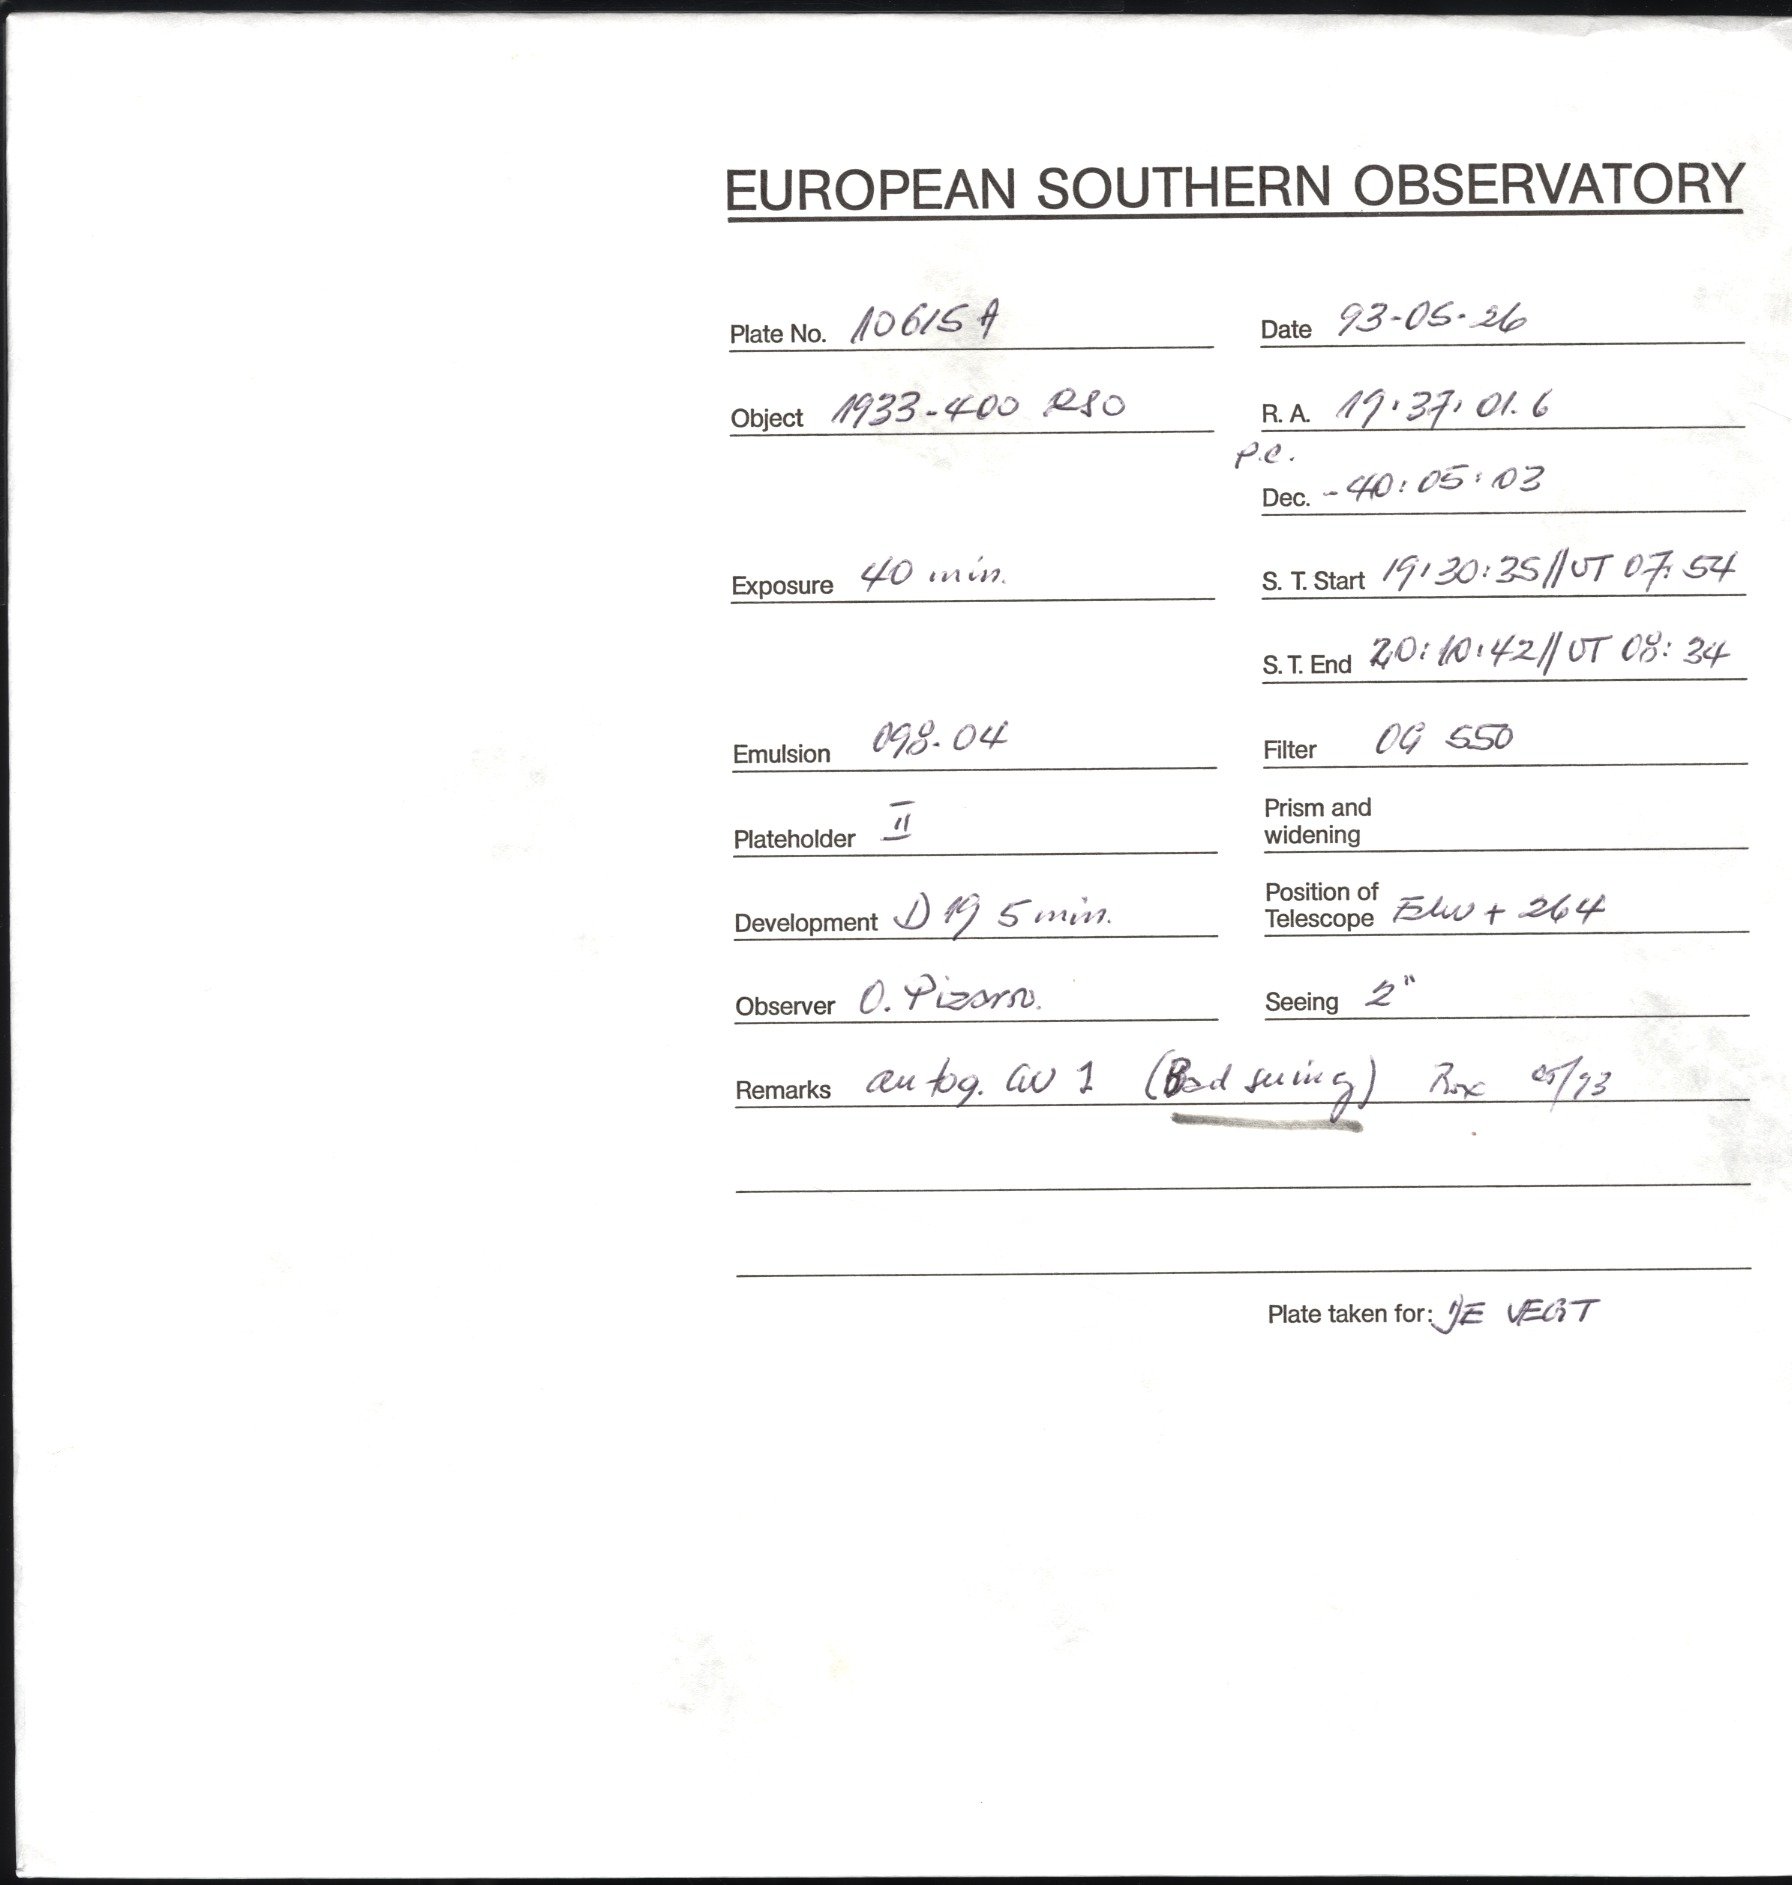 EUROPEAN SOUTHERN OBSERVATORY
Plate No. 10615A Date 93-05-26
Object 1933-400 RSO R. A. 19:37:01.6
P.C.
Dec. -40:05:03
Exposure 40 min. S. T. Start 19:30:35//UT 07:54
S. T. End 20:10:42//UT 08:34
Emulsion 098-04 Filter OG 550
Plateholder II Prism and
widening
Development D19 5 min. Position of
Telescope + 264
Observer O. Pizarro. Seeing 2"
Remarks autog. 1 (Bad seeing) 05/93
Plate taken for: DE VEGT